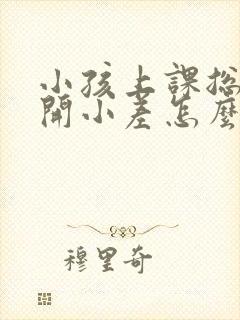 小孩上課總
開小差怎麼
穆里奇